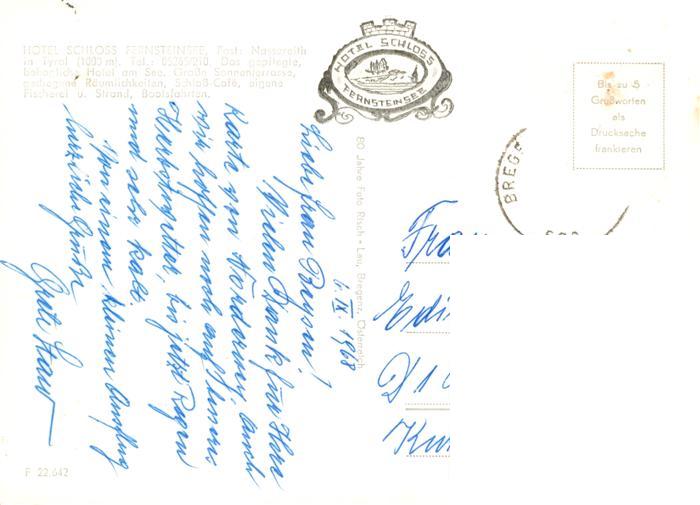 HOTEL SCHLOSS FERNSTEINSEE, Post: Nassereith
in Tyrol (1000 m). Tel.: 05265/210. Das gepflegte,
bekannte Hotel am See. Große Sonnenterrasse,
gediegene Räumlichkeiten, Schloß-Café, eigene
Fischerei u. Strand, Bootsfahrten.
HOTEL SCHLOSS
FERNSTEINSEE
Bis zu 5
Grußworten
als
Drucksache
frankieren
BREGE
6. IX. 1968
Liebe Frau
Vielen Dank für Ihre
Karte von Norderney, auch
wir hoffen noch auf besseres
Herbstwetter, bis jetzt Regen
und sehr kalt.
Von einem kleinen Ausflug
herzliche Grüße
Grete
80 Jahre Foto Risch-Lau, Bregenz, Österreich
Fra
Edi
D 1
Ku
F 22.642